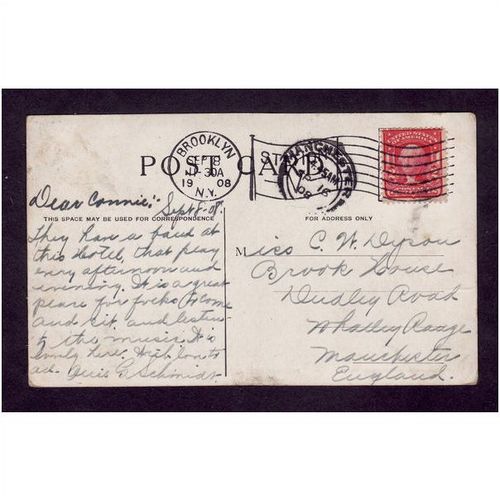 BROOKLYN
SEP 8
11-30A
1908
N.Y.
STA
MANCHESTER
UNITED STATES
POST CARD
Dear Connie:
Sept 8-08.
THIS SPACE MAY BE USED FOR CORRESPONDENCE
FOR ADDRESS ONLY
They have a band at
this Hotel, that play
every afternoon and
evening. It is a great
place for folks to come
and sit and listen
to the music. It is
lovely here. With love to
all. G. Schmidt.
Miss C. W. Dyson
Brook House
Dudley Road
Whalley Range
Manchester
England.